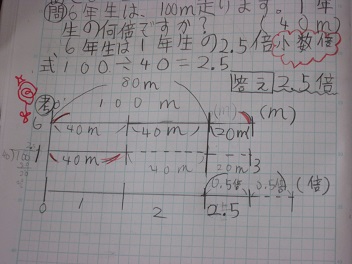 問 6年生は、100m走ります。1年
(40m)
生の何倍ですか?
6年生は1年生の2.5倍 小数倍
式 100÷40=2.5
答え 2.5倍
80m
考 0 100m (m) (m)
6 40m 40m 20m
1 40m 40m 20m 3
0.5倍 0.5倍 (倍)
0 1 2 2.5